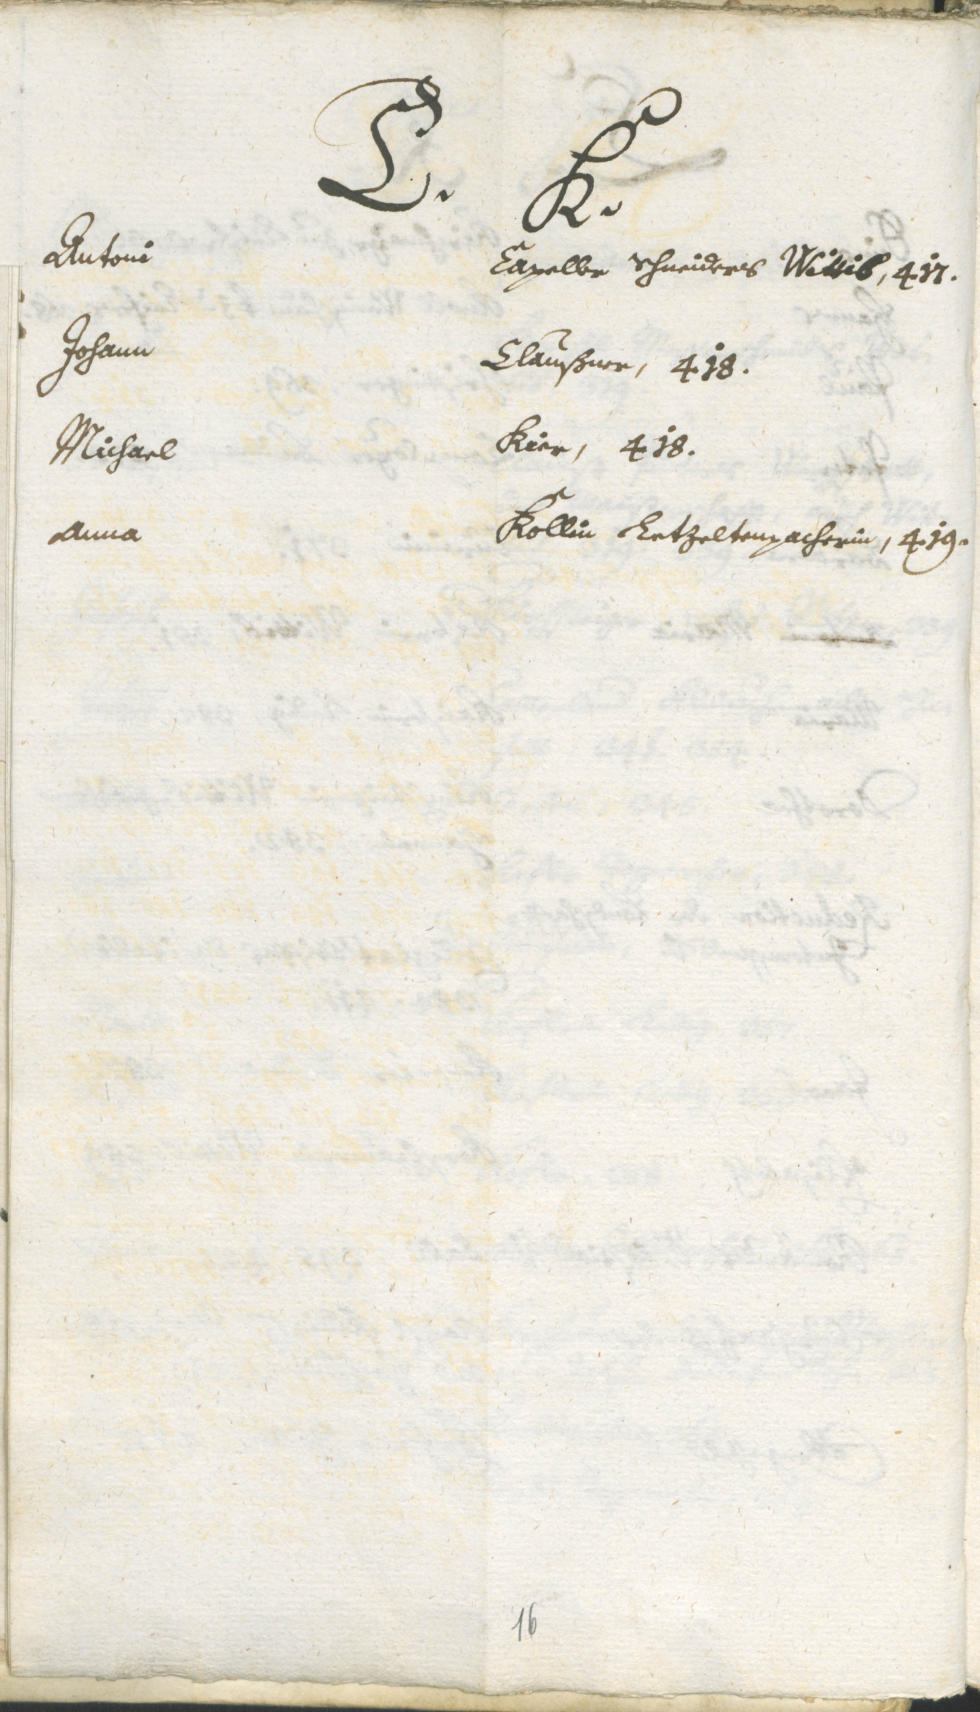 C. K.
Antoni Capeller Schneiders Wittib, 417.
Johann Claußner, 418.
Michael Kier, 418.
Anna Kollin Letzeltenpacherin, 419.
16